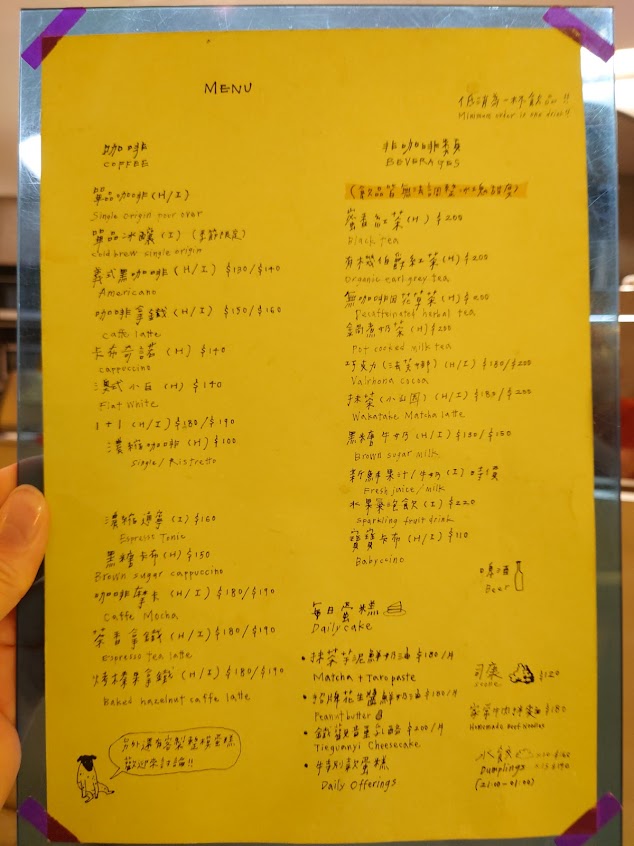 MENU
低消為一杯飲品!!
Minimum order is one drink!!
咖啡
COFFEE
單品咖啡(H/I)
Single origin pour over
單品冰釀(I)(季節限定)
cold brew single origin
義式黑咖啡(H/I) $130/$140
Americano
咖啡拿鐵(H/I) $150/$160
caffe latte
卡布奇諾(H) $140
cappuccino
澳式小白(H) $140
Flat White
1+1(H/I)$180/$190
濃縮咖啡(H)$100
Single/Ristretto
濃縮通寧(I)$160
Espresso Tonic
黑糖卡布(H)$150
Brown sugar cappuccino
咖啡摩卡(H/I)$180/$190
Caffe Mocha
茶香拿鐵(H/I)$180/$190
Espresso tea latte
烤榛果拿鐵(H/I)$180/$190
Baked hazelnut caffe latte
另外還有客製整模蛋糕
歡迎來討論!!
非咖啡類
BEVERAGES
(飲品皆無法調整冰塊甜度)
蜜香紅茶(H)$200
Black tea
有機伯爵紅茶(H)$200
Organic earl grey tea
無咖啡因花草茶(H)$200
Decaffeinated herbal tea
鍋煮奶茶(H)$200
Pot cooked milk tea
巧克力(法芙娜)(H/I)$180/$200
Valrhona cocoa
抹茶(小山園)(H/I)$180/$200
Wakatake Matcha latte
黑糖牛奶(H/I)$130/$150
Brown sugar milk
新鮮果汁/牛奶(I)時價
Fresh juice/milk
水果氣泡飲(I)$220
Sparkling fruit drink
寶寶卡布(H/I)$110
Babyccino
啤酒
Beer
每日蛋糕
Daily cake
• 抹茶芋泥鮮奶油 $180/片
Matcha + Taro paste
• 招牌花生醬鮮奶油 $180/片
Peanut butter
• 鐵觀音重乳酪 $200/片
Tieguanyi Cheesecake
• 特別款蛋糕
Daily Offerings
司康 $120
scone
家常牛肉拌麵 $180
Homemade Beef Noodles
水餃
Dumplings
(21:00-01:00)